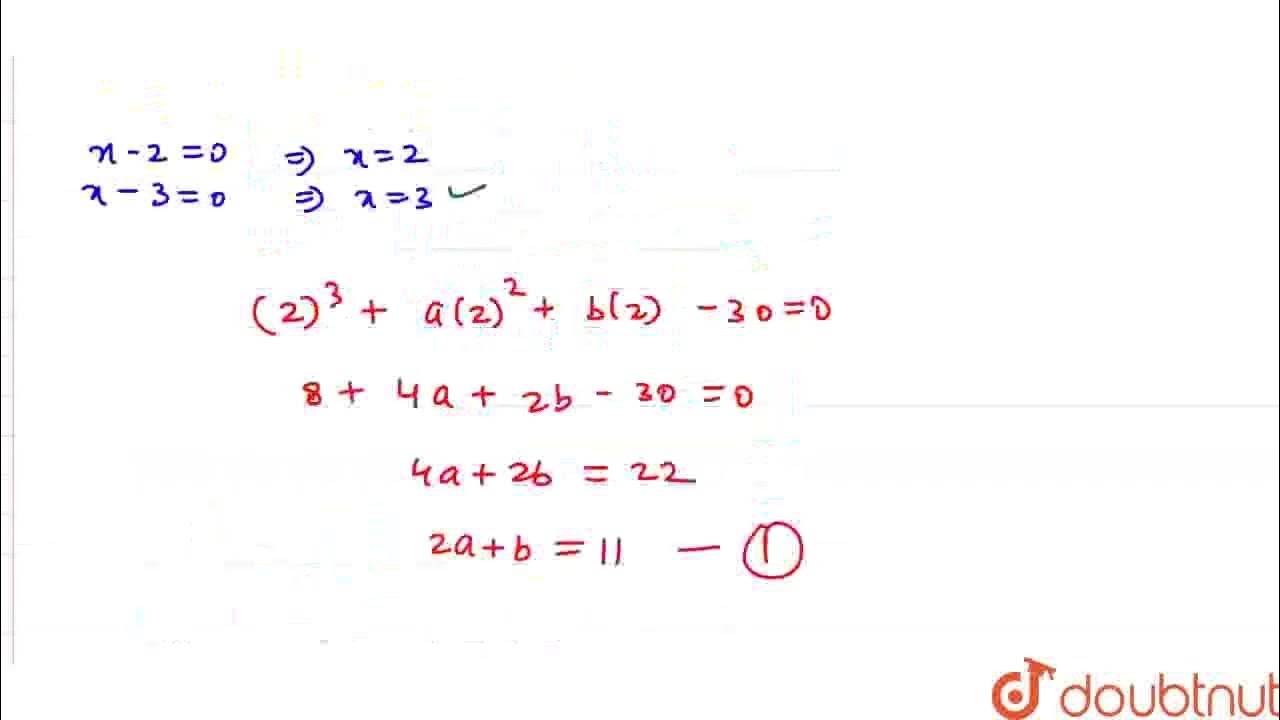 x - 2 = 0 ⇒ x = 2
x - 3 = 0 ⇒ x = 3 ✓
(2)³ + a(2)² + b(2) - 30 = 0
8 + 4a + 2b - 30 = 0
4a + 2b = 22
2a + b = 11 — ①
doubtnut